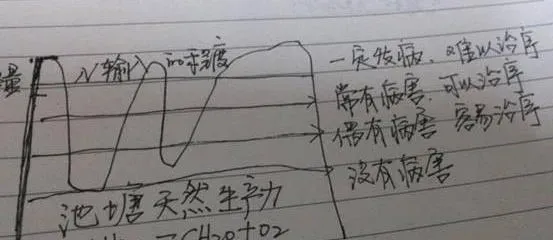 量 N输入 的强度 一定发病、难以治疗
常有病害、可以治疗
偶有病害 容易治疗
没有病害
池塘天然生产力
CH2O+O2